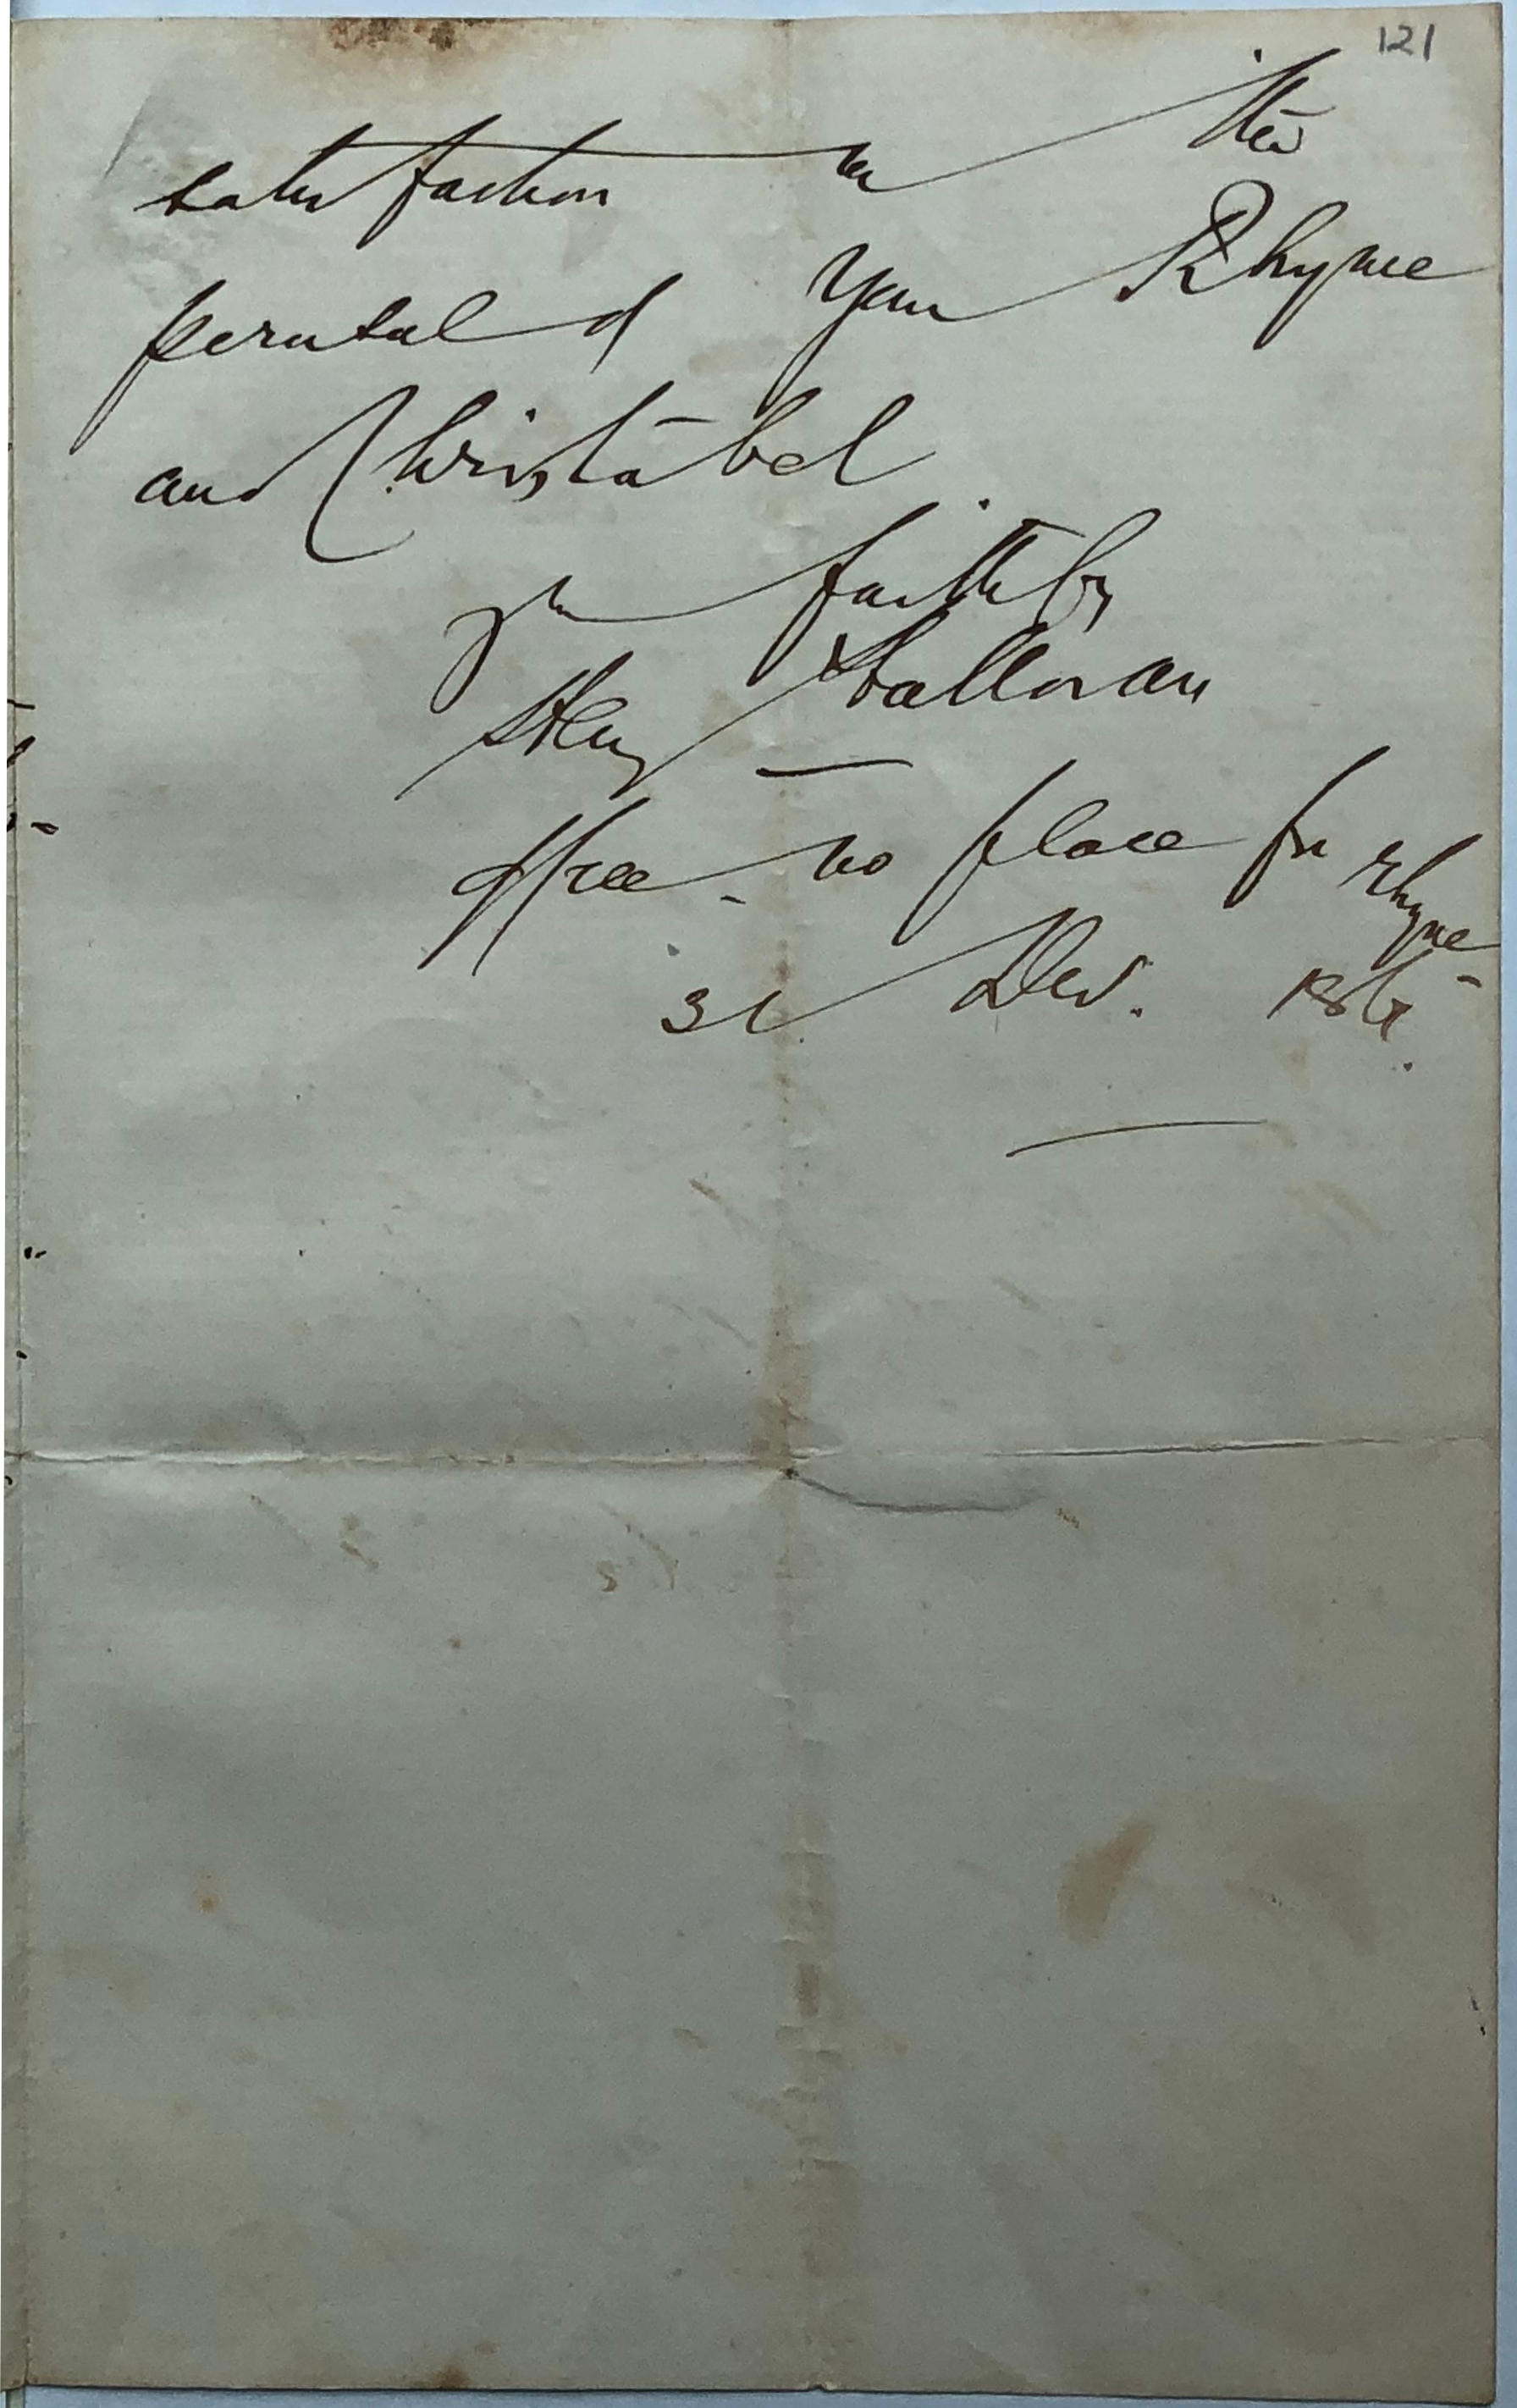 121
satisfaction in the
perusal of your Rhyme
and Christabel.
yrs faithfly
Hy Halloran
Office - no place for rhyme -
31 Dec. 186